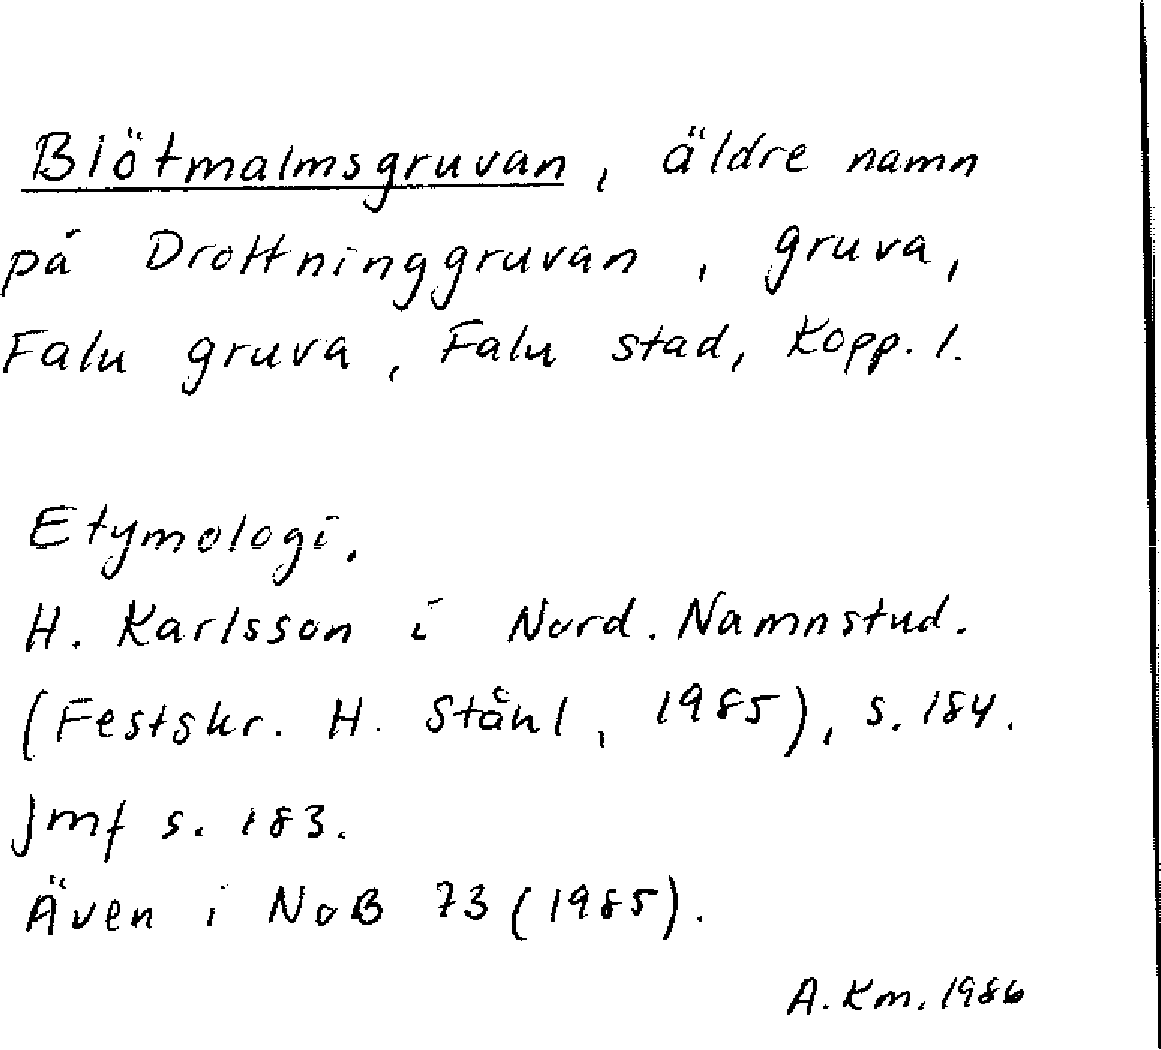 Blötmalmsgruvan, äldre namn
på Drottninggruvan, gruva,
Falu gruva, Falu stad, Kopp. l.
Etymologi.
H. Karlsson i Nord. Namnstud.
(Festskr. H. Ståhl, 1985), s. 184.
Jmf s. 183.
Även i NoB 73 (1985).
A. Km. 1986